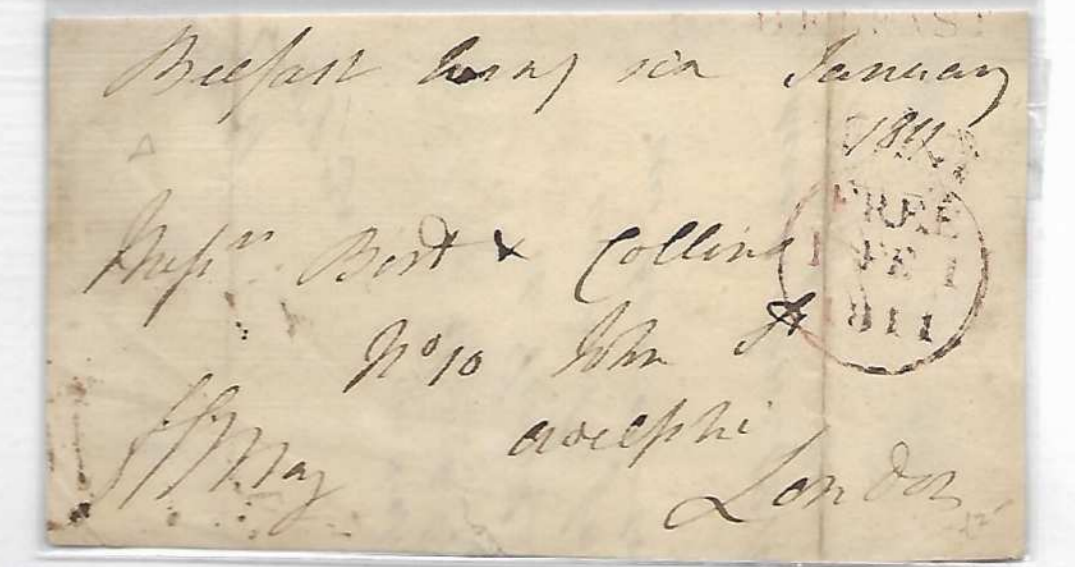 BELFAST
Belfast twenty six January
1811
FREE
FE 1
1811
Messrs Bord & Collins
No 10 John St
Adelphi
London
May